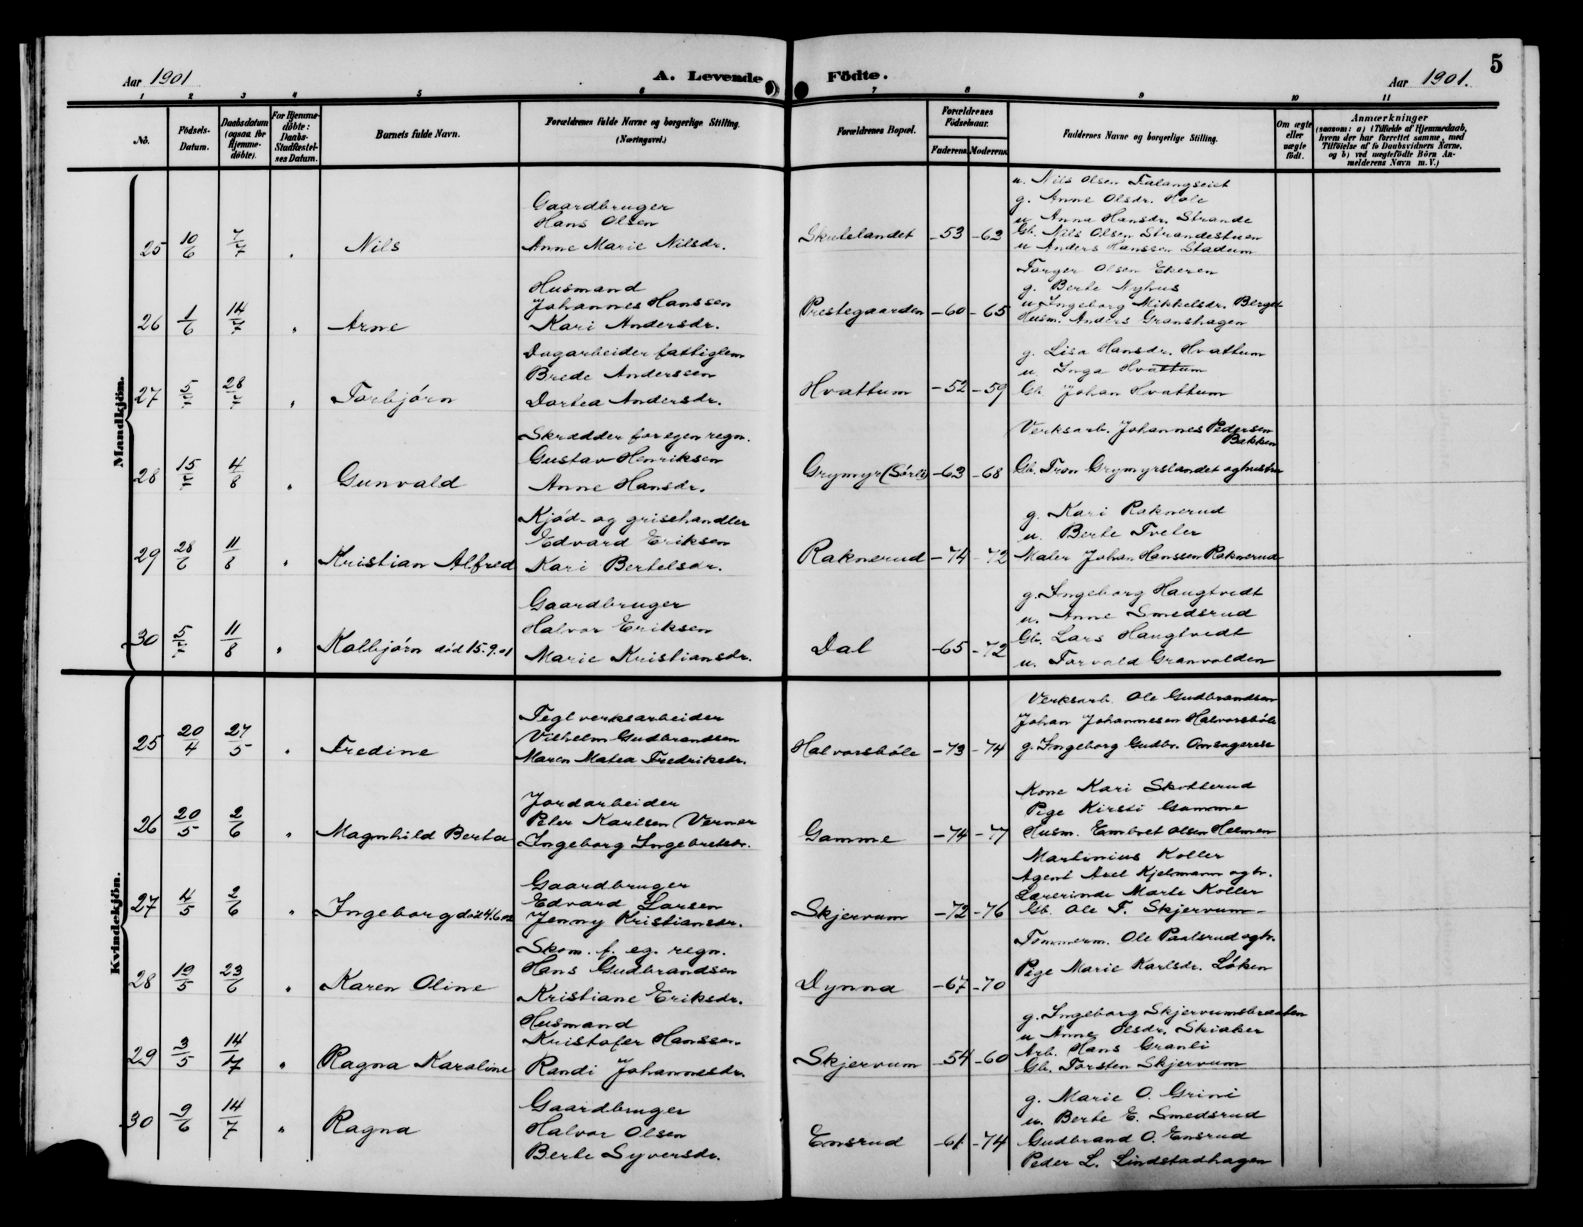 Aar 1901 A. Levende Fødte. Aar 1901. 5
1 2 3 4 5 6 7 8 9 10 11
No. Fødsels-Datum. Daabsdatum (ogsaa for Hjemmedøbte). For Hjemmedøbte: Daabs-Stadfæstelses Datum. Barnets fulde Navn. Forældrenes fulde Navne og borgerlige Stilling. (Næringsvei.) Forældrenes Bopæl. Forældrenes Fødselsaar. Faderens Moderens Faddernes Navne og borgerlige Stilling. Om ægte eller uægte født. Anmærkninger (saasom: a) i Tilfælde af Hjemmedaab, hvem der har forrettet samme, med Tilføielse af to Daabsvidners Navne, og b) ved uægtefødte Børn Anmelderens Navn m. V.)
Mandkjøn.
25 10/6 7/7 " Nils
Gaardbruger
Hans Olsen
Anne Marie Nilsdr.
Skutelandet -53 -63
u. Nils Olsen Falangseiet
g. Anne Olsdr. Hole
u. Anna Hansdr. Strande
Gb. Nils Olsen Strandestuen
u. Anders Hanssen Stadum
26 1/6 14/7 " Arne
Husmand
Johannes Hanssen
Kari Andersdr.
Prestegaarden -60 -65
Torger Olsen Ekeren
g. Berte Nyhus
u. Ingeborg Mikkelsdr. Berget
Husm. Anders Granshagen
27 5/7 28/7 " Torbjørn
Dagarbeider fattiglem
Brede Anderssen
Dortea Andersdr.
Hvattum -52 -59
g. Lisa Hansdr. Hvattum
u. Inga Hvattum
Gb. Johan Hvattum
28 15/7 4/8 " Gunvald
Skrædder for egen regn.
Gustav Henriksen
Anne Hansdr.
Grymyr (Sørli) -63 -68
Verksarb. Johannes Pedersen
Bakken
Gb. Tron Grymyrslandet og hustru
29 28/6 11/8 " Kristian Alfred
Kjød- og grisehandler
Edvard Eriksen
Kari Bertelsdr.
Raknerud -74 -72
g. Kari Raknerud
u. Berte Tveter
Maler Johan Hanssen Raknerud
30 5/7 11/8 " Kolbjørn død 15.9.01
Gaardbruger
Halvor Eriksen
Marie Kristiansdr.
Dal -65 -72
g. Ingeborg Haugtvedt
u. Anne Smedsrud
Gb. Lars Haugtvedt
u. Torvald Granvolden
Kvindekjøn.
25 20/4 27/5 " Fredine
Teglverksarbeider
Vilhelm Gudbrandsen
Maren Matea Fredriksdr.
Halvorsbøle -73 -74
Verksarb. Ole Gudbrandsen
Johan Johannesen Halvorsbøle
g. Ingeborg Gudbr.
26 20/5 2/6 " Magnhild Berta
Jordarbeider
Peter Karlsen Verner
Ingeborg Ingebretsdr.
Gamme -74 -77
Kone Kari Skotterud
Pige Kirsti Gamme
Husm. Embret Olsen Helmen
27 4/5 2/6 " Ingeborg død 4.6.02
Gaardbruger
Edvard Larsen
Jenny Kristiansdr.
Skjervum -72 -76
Martinius Koller
Agent Axel Kjelmann og br.
Lærerinde Marte Koller
Gb. Ole T. Skjervum
28 19/5 23/6 " Karen Oline
Skom. f. eg. regn.
Hans Gudbrandsen
Kristiane Eriksdr.
Dynna -67 -70
Tømmerm. Ole Paalsrud og br.
Pige Marie Karlsdr. Løken
29 3/5 14/7 " Ragna Karoline
Husmand
Kristofer Hanssen
Randi Johannesdr.
Skjervum -54 -60
g. Ingeborg Skjervumsbraaten
u. Anne Olsdr. Skiaker
Arb. Hans Granli
Gb. Torsten Skjervum
30 9/6 14/7 " Ragna
Gaardbruger
Halvor Olsen
Berte Syversdr.
Emsrud -61 -74
g. Marie O. Grini
u. Berte E. Smedsrud
Gudbrand O. Ensrud
Peder L. Lindstadhagen